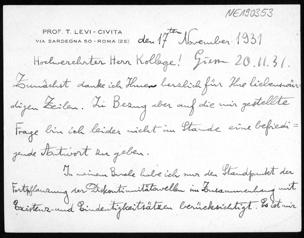 NE190353
PROF. T. LEVI-CIVITA
VIA SARDEGNA 50 - ROMA (25)
den 17ten November 1931
Hochverehrter Herr Kollege! 20.11.31.
Zunächst danke ich Ihnen herzlich für Ihre liebenswür-
digen Zeilen. In Bezug aber auf die mir gestellte
Frage bin ich leider nicht im Stande eine befriedi-
gende Antwort zu geben.
In meinen habe ich nur den Standpunkt der
Fortpflanzung der Diskontinuitätswellen im Zusammenhang mit
Existenz- und Eindeutigkeitsätzen berücksichtigt. Es ist mir